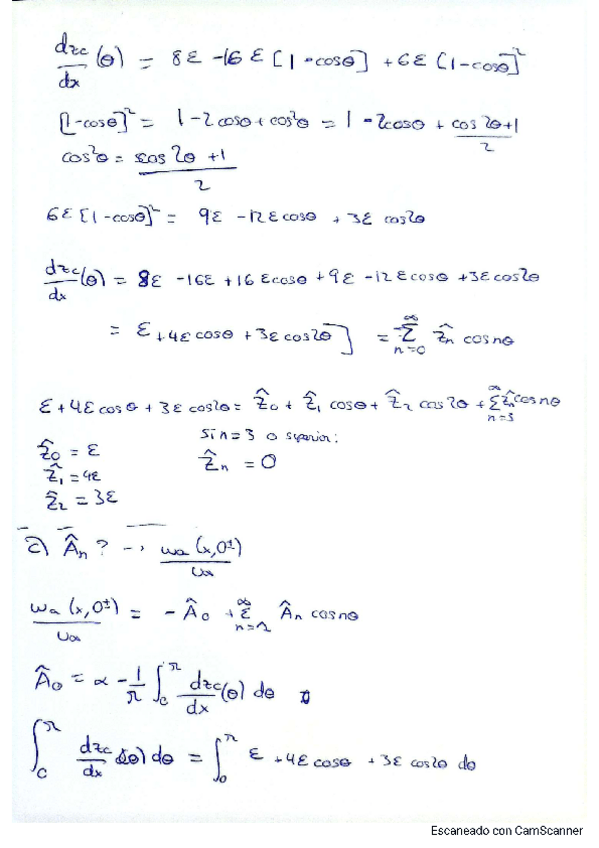 dzc/dx (θ) = 8ε -16 ε [1 - cosθ] + 6ε [1-cosθ]²
[1-cosθ]² = 1 - 2cosθ + cos²θ = 1 - 2cosθ + (cos 2θ+1)/2
cos²θ = (cos 2θ +1)/2
6ε [1-cosθ]² = 9ε -12 ε cosθ + 3ε cos2θ
dzc/dx (θ) = 8ε -16ε + 16 ε cosθ + 9ε -12 ε cosθ + 3ε cos2θ
= ε + 4ε cosθ + 3ε cos2θ ] = Σ_{n=0}^{∞} Ẑn cos nθ
ε + 4ε cosθ + 3ε cos2θ = Ẑ0 + Ẑ1 cosθ + Ẑ2 cos 2θ + Σ_{n=3}^{∞} Ẑn cos nθ
Ẑ0 = ε
Ẑ1 = 4ε
Ẑ2 = 3ε
Si n=3 o superior:
Ẑn = 0
c) Ân ? --> wa (x,0±)/U∞
wa (x,0±)/U∞ = - Â0 + Σ_{n=1}^{∞} Ân cos nθ
Â0 = α - 1/π ∫_0^π dzc/dx (θ) dθ
∫_0^π dzc/dx (θ) dθ = ∫_0^π ε + 4ε cosθ + 3ε cos2θ dθ
Escaneado con CamScanner